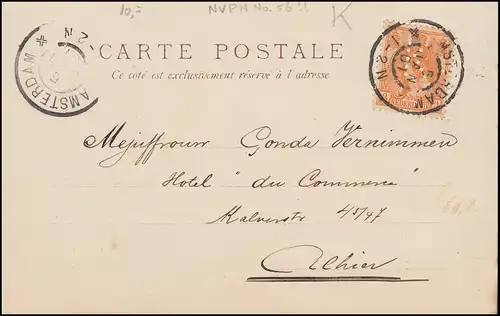 10,=
NVPH No. 56
K
CARTE POSTALE
Ce côté est exclusivement réservé à l'adresse
AMSTERDAM
AMSTERDAM
Mejuffrouw Gonda Vernimmen
Hotel "du Commerce"
Kalverstr 45/47
Alhier